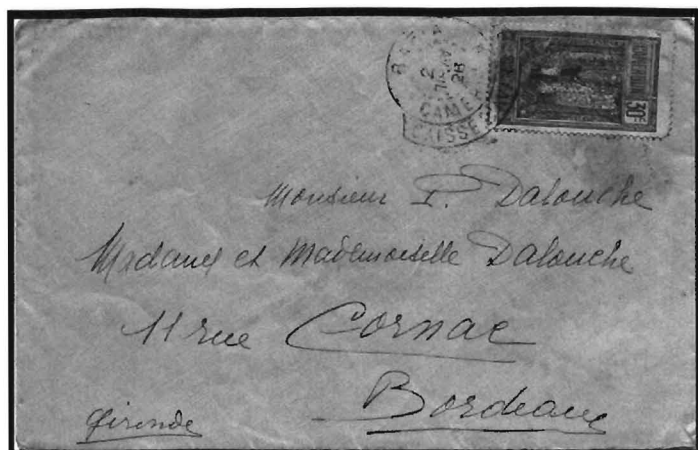 2
26
CAMER
CAISSE
30F
Monsieur P. Dalouche
Madame et Mademoiselle Dalouche
11 rue Cornac
Bordeaux
Gironde